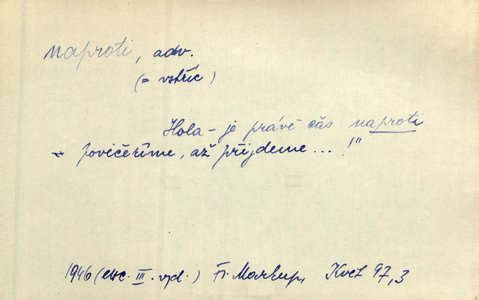 naproti, adv.
(= vstříc)
Hola - je právě čás naproti
povičeříme, až přijdeme...!"
1946 (exc. III. vyd.) Fr. Markup, Květ 97,3